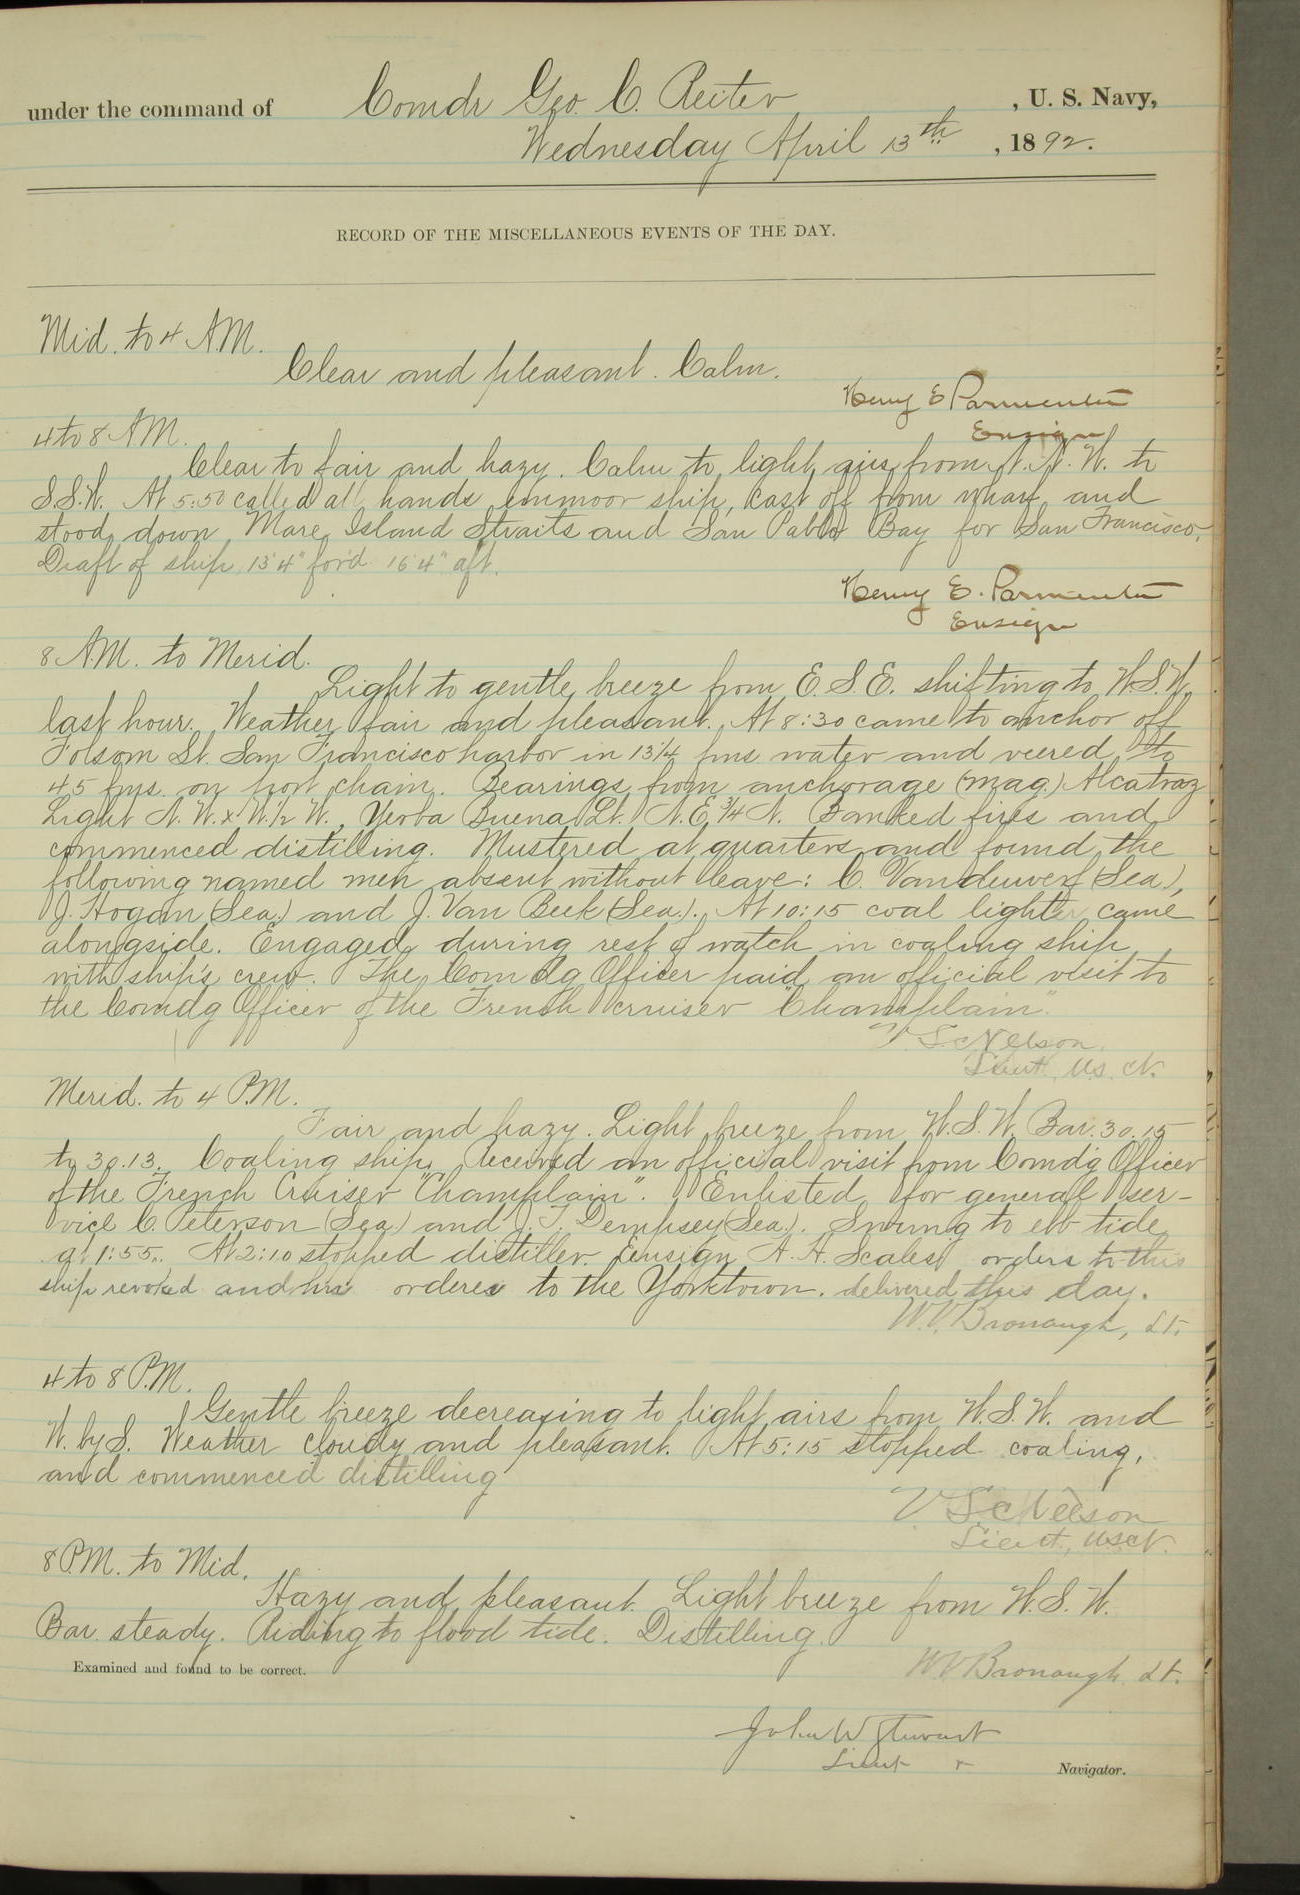 under the command of Comdr Geo. C. Reiter, U. S. Navy,
Wednesday April 13th, 1892.
RECORD OF THE MISCELLANEOUS EVENTS OF THE DAY.
Mid. to 4 A.M.
Clear and pleasant. Calm.
Henry E Parmenter
Ensign
4 to 8 A.M.
Clear to fair and hazy. Calm to light airs from N.N.W. to
S.S.W. At 5:50 called all hands unmoor ship, cast off from wharf and
stood down Mare Island Straits and San Pablo Bay for San Francisco.
Draft of ship 13'4" for'd 16'4" aft.
Henry E. Parmenter
Ensign
8 A.M. to Merid.
Light to gentle breeze from E.S.E. shifting to W.S.W.
last hour. Weather fair and pleasant. At 8:30 came to anchor off
Folsom St. San Francisco harbor in 13 1/4 fms water and veered to
45 fms. on port chain. Bearings from anchorage (mag.) Alcatraz
Light N.W. x W. 1/2 W., Yerba Buena Lt. N.E. 3/4 N. Banked fires and
commenced distilling. Mustered at quarters and found the
following named men absent without leave: C. Vandeuver (Sea.),
J. Hogan (Sea.) and J. Van Beek (Sea.). At 10:15 coal lighter came
alongside. Engaged during rest of watch in coaling ship
with ship's crew. The Comdg Officer paid an official visit to
the Comdg Officer of the French cruiser "Champlain".
V. S. Nelson
Lieut., U.S.N.
Merid. to 4 P.M.
Fair and hazy. Light breeze from W.S.W. Bar. 30.15
to 30.13. Coaling ship. Received an official visit from Comdg Officer
of the French Cruiser "Champlain". Enlisted for general ser-
vice C. Peterson (Sea.) and J. T. Dempsey (Sea.). Swung to ebb tide
at 1:55. At 2:10 stopped distiller. Ensign A. H. Scales' orders to this
ship revoked and his orders to the Yorktown. delivered this day.
W.V. Bronaugh, Lt.
4 to 8 P.M.
Gentle breeze decreasing to light airs from W.S.W. and
W. by S. Weather cloudy and pleasant. At 5:15 stopped coaling,
and commenced distilling
V. S. Nelson
Lieut., U.S.N.
8 P.M. to Mid.
Hazy and pleasant. Light breeze from W.S.W.
Bar. steady. Riding to flood tide. Distilling.
Examined and found to be correct.
W.V. Bronaugh Lt.
John W Stewart
Lieut
Navigator.